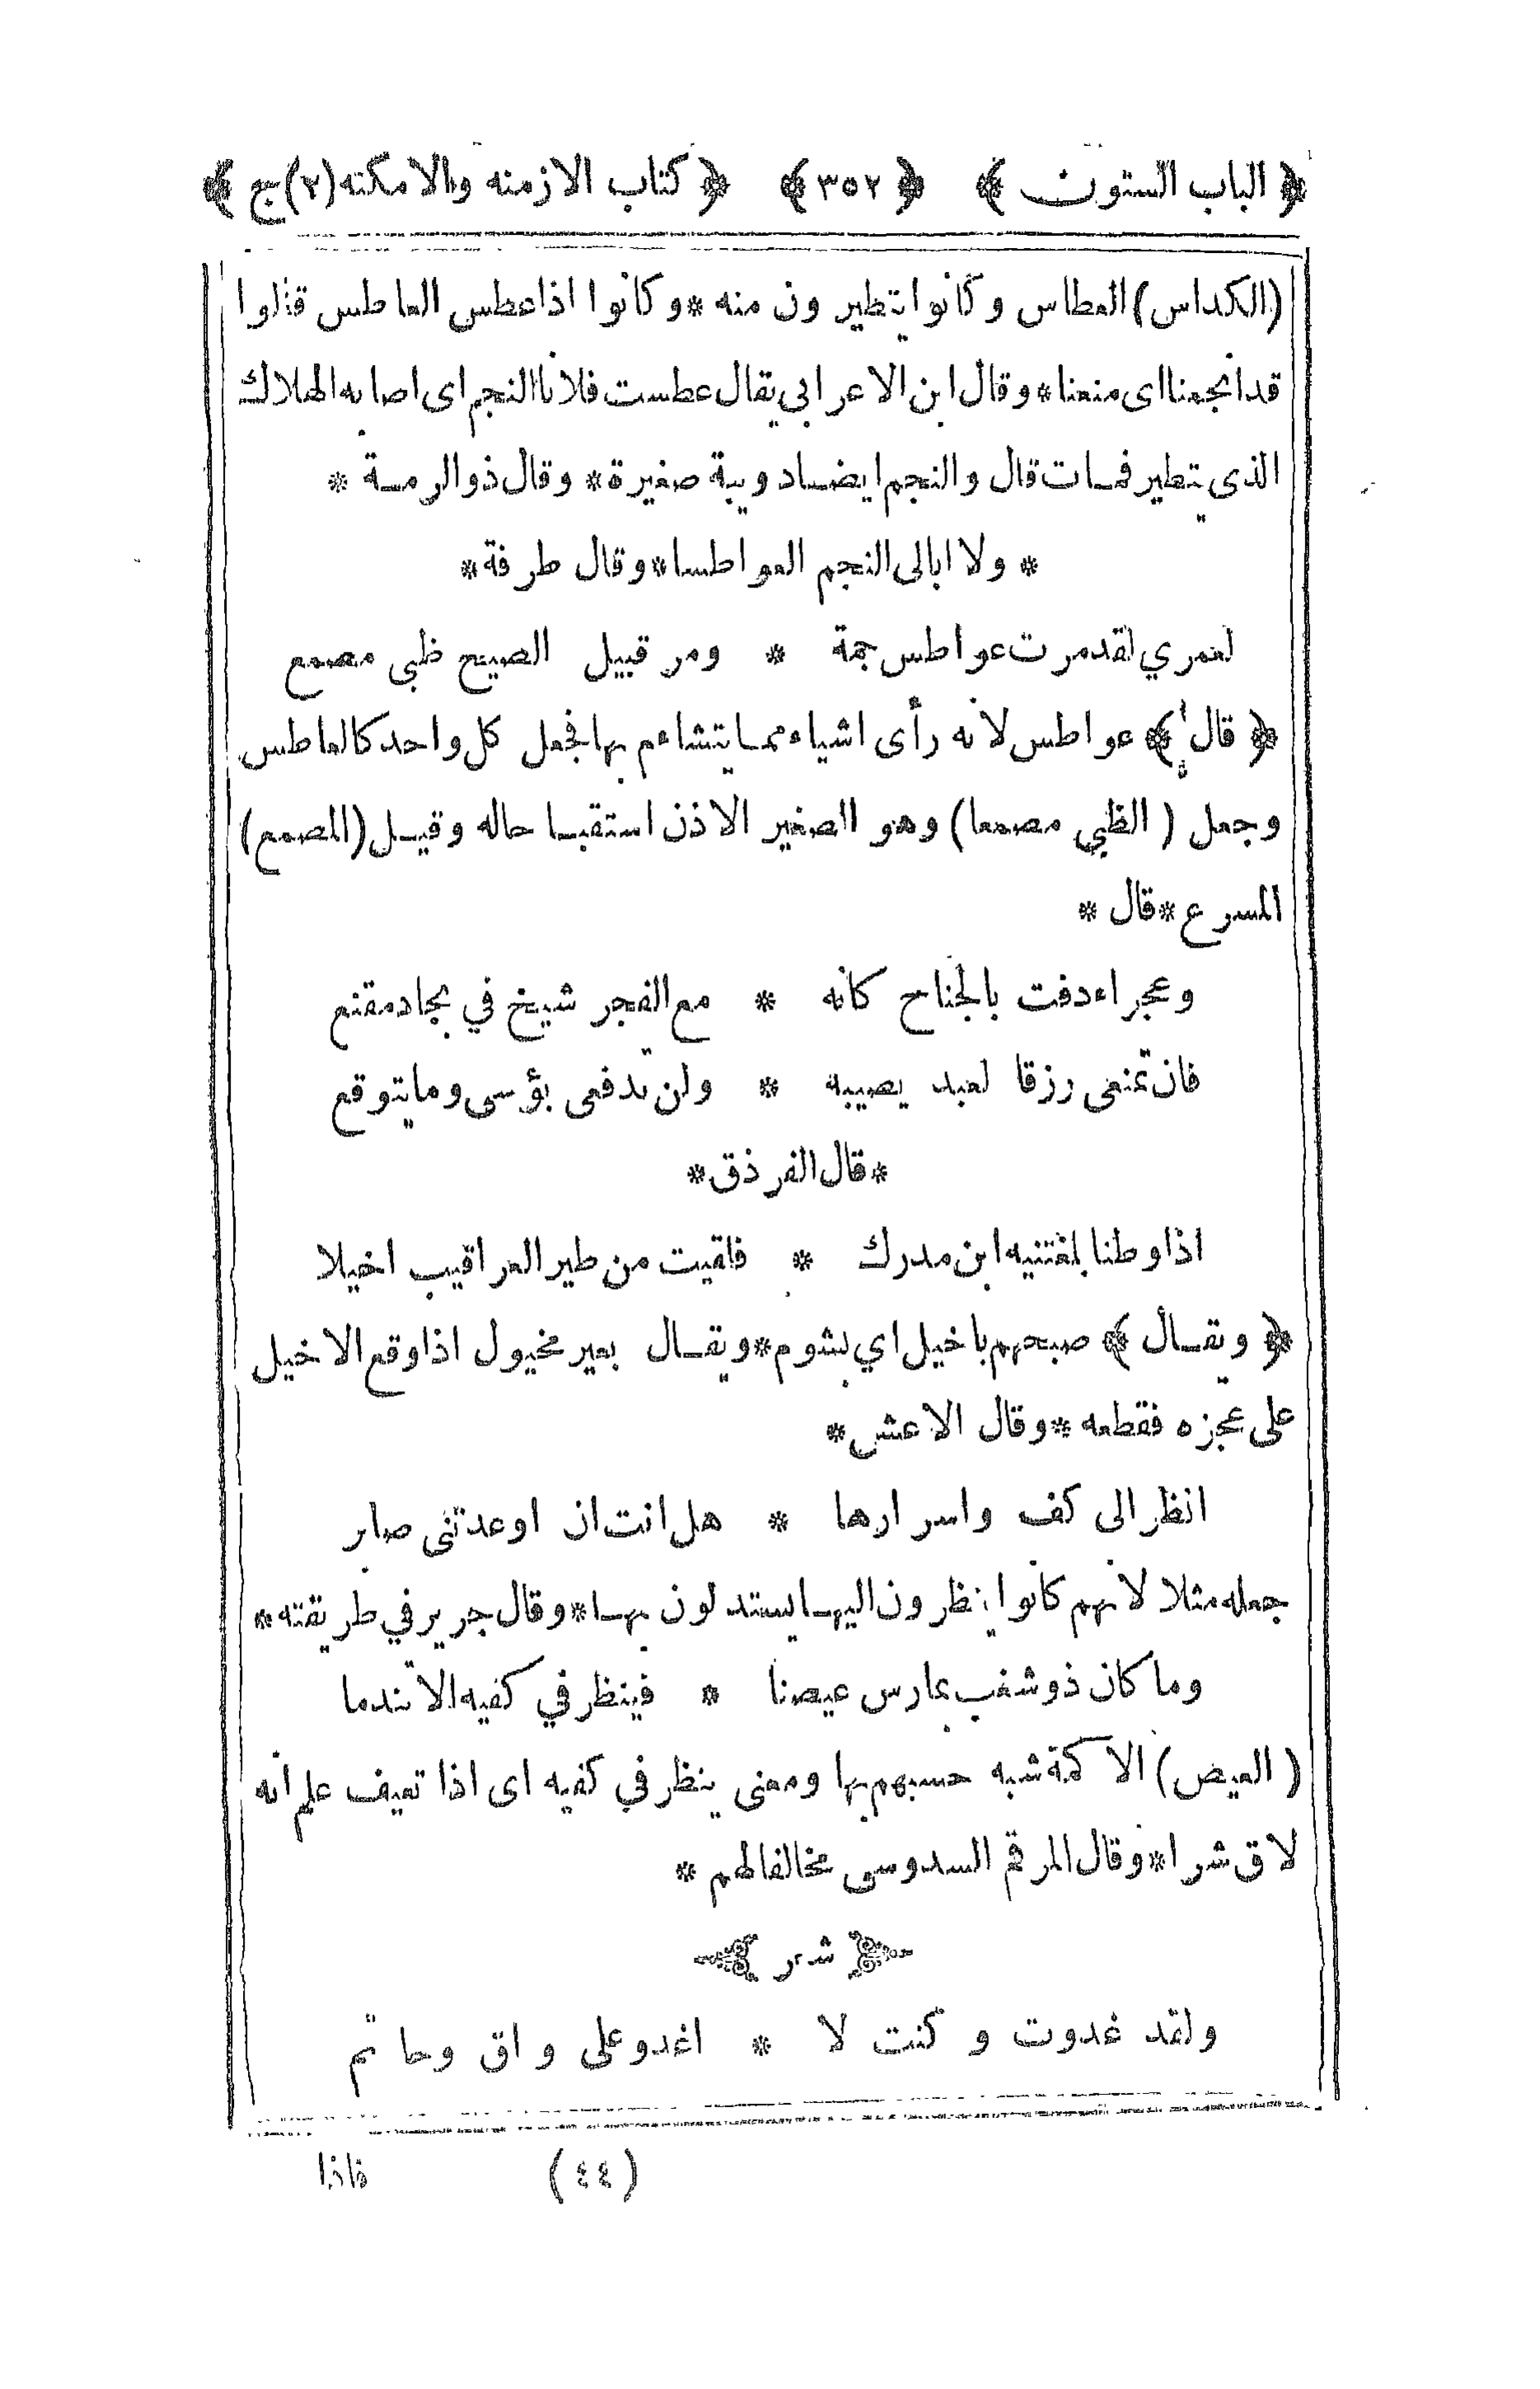 ﴿ الباب الستون ﴾ ﴿ ٣٥٢ ﴾ ﴿ كتاب الازمنه والامكنه (٢) ج ﴾
(الكداس) العطاس وكانوا يتطيرون منه * وكانوا اذا عطس العاطس قالوا
قد انجعنا اى منعنا * وقال ابن الاعرابي يقال عطست فلانا النجم اى اصابه الهلاك
الذى يتطير فمات قال والنجم ايضا دويبة صغيرة * وقال ذو الرمة *
* ولا ابالى النجم العواطسا * وقال طرفة *
لعمري لقد مرت عواطس جمة * ومر قبيل الصبح ظبى مصمع
﴿ قال ﴾ عواطس لانه رأى اشياء مما يتشاءم بها فجعل كل واحد كالعاطس
وجعل ( الظبي مصمعا ) وهو الصغير الاذن استقبا حاله وقيل (المصمع)
المسرع * قال *
وعجراء دفت بالجناح كانه * مع الفجر شيخ في بجاد مقنع
فان تمنعى رزقا لعبد يصيبه * ولن تدفعى بؤسى وما يتوقع
* قال الفرذق *
اذا وطنا بلغتنيه ابن مدرك * فلقيت من طير العراقيب اخيلا
﴿ ويقال ﴾ صبحهم باخيل اي بشوم * ويقال بعير مخيول اذا وقع الاخيل
على عجزه فقطعه * وقال الاعش *
انظر الى كف واسرارها * هل انت ان اوعدتنى صابر
جعله مثلا لانهم كانوا ينظرون اليها يستدلون بها * وقال جرير في طريقته *
وما كان ذو شغب يمارس عيصنا * فينظر في كفيه الا تندما
( العيص ) الاكمة شبه حسبهم بها ومعنى ينظر في كفيه اى اذا تعيف علم انه
لاق شرا * وقال المرقم السدوسى مخالفا لهم *
شعر
ولقد غدوت وكنت لا * اغدو على واق وحاتم
(٤٤) فاذا